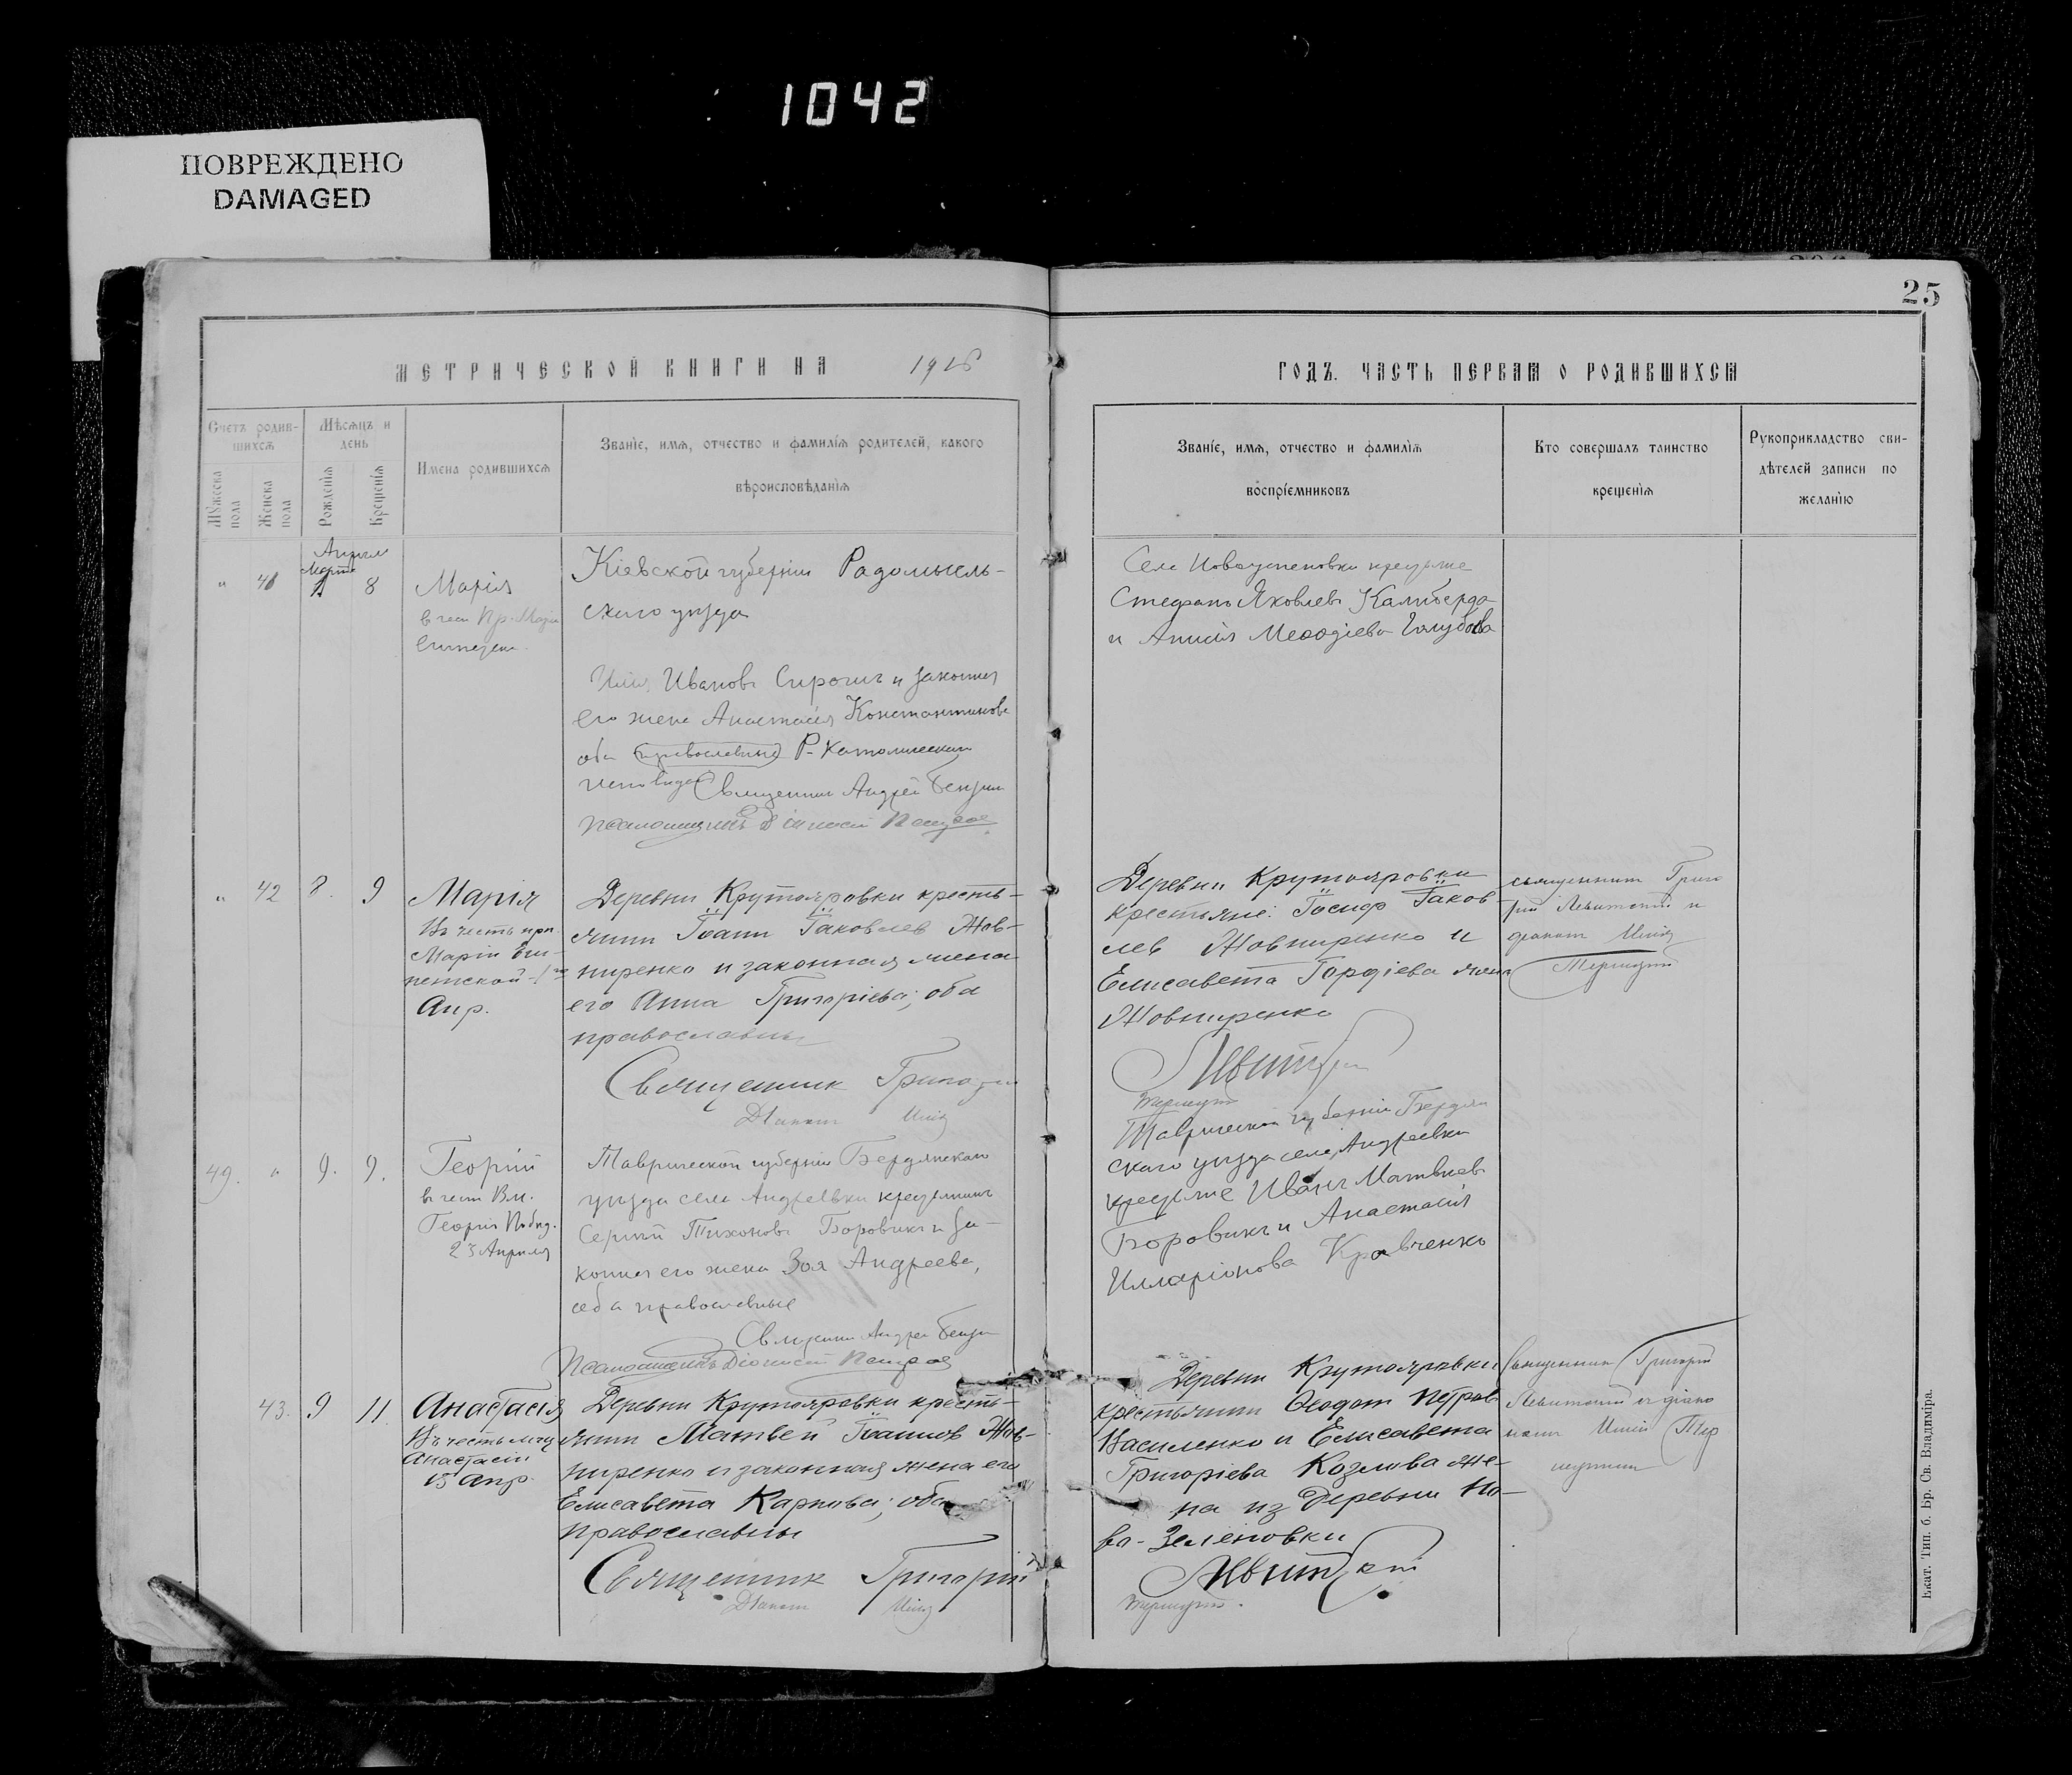 1042
ПОВРЕЖДЕНО
DAMAGED
25
МЕТРИЧЕСКОЙ КНИГИ НА 1916
ГОДЪ. ЧАСТЬ ПЕРВАЯ О РОДИВШИХСЯ
Счетъ родив-
шихся
Мужеска
пола
Женска
пола
Мѣсяцъ и
день
Рожденія
Крещенія
Имена родившихся
Званіе, имя, отчество и фамилія родителей, какого
вѣроисповѣданія
Званіе, имя, отчество и фамилія
воспріемниковъ
Кто совершалъ таинство
крещенія
Рукоприкладство сви-
дѣтелей записи по
желанію
Апрѣля
Марта
" 41 1 8
Марія
в чест. Пр. Маріи
Египетск.
Кіевской губерніи Радомысль-
скаго уѣзда
Иванов и законная
его жена Анастасія Константинова
оба (православные) Р-Католическаго
исповѣд. Священник Андрей
Псаломщикъ Діонисій Петров
Села Новоуспеновки крестьяне
Стефанъ Яковлевъ Калиберда
и Анисія Меѳодіева Голубова
" 42 8. 9
Марія
Въ честь прп.
Маріи Еги-
петской 1го
Апр.
Деревни Крутояровки кресть-
янин Іоанн Іаковлев Жов-
ниренко и законная жена
его Анна Григоріева; оба
православны
Священник Григорій
Діакон Илія
Деревни Крутояровки
крестьяне: Іосиф Іаков-
лев Жовниренко и
Елисавета Гордіева жена
Жовниренко
Левитскій
священник Григо
рій Левитскій и
діакон Илія
49. " 9. 9.
Георгій
в чест Вм.
Георгія Побѣд.
23 Апрѣля
Таврической губерніи Бердянскаго
уѣзда села Андреевки крестьянинъ
Сергій Тихоновъ Боровикъ и за-
конная его жена Зоя Андреева,
оба православные
Священник Андрей
Псаломщикъ Діонисій Петров
Таврической губерніи Бердян
скаго уѣзда села Андреевки
крестьяне Иванъ Матвѣев
Боровикъ и Анастасія
Илларіонова Кравченко
43. 9 11.
Анастасія
Въ честь мчц.
Анастасіи
15 Апр.
Деревни Крутояровки кресть-
янин Матвей Іоаннов Жов-
ниренко и законная жена его
Елисавета Карпова; оба
православны
Священник Григорій
Діакон Илія
Деревни Крутояровки
крестьянин Ѳеодот Петров
Василенко и Елисавета
Григоріева Козлова же-
на из деревни Но-
во-Зеленовки
Левитскій
Священник Григорій
Левитскій и діако
ном Иліей
Екат. Тип. б. Бр. Св. Владиміра.